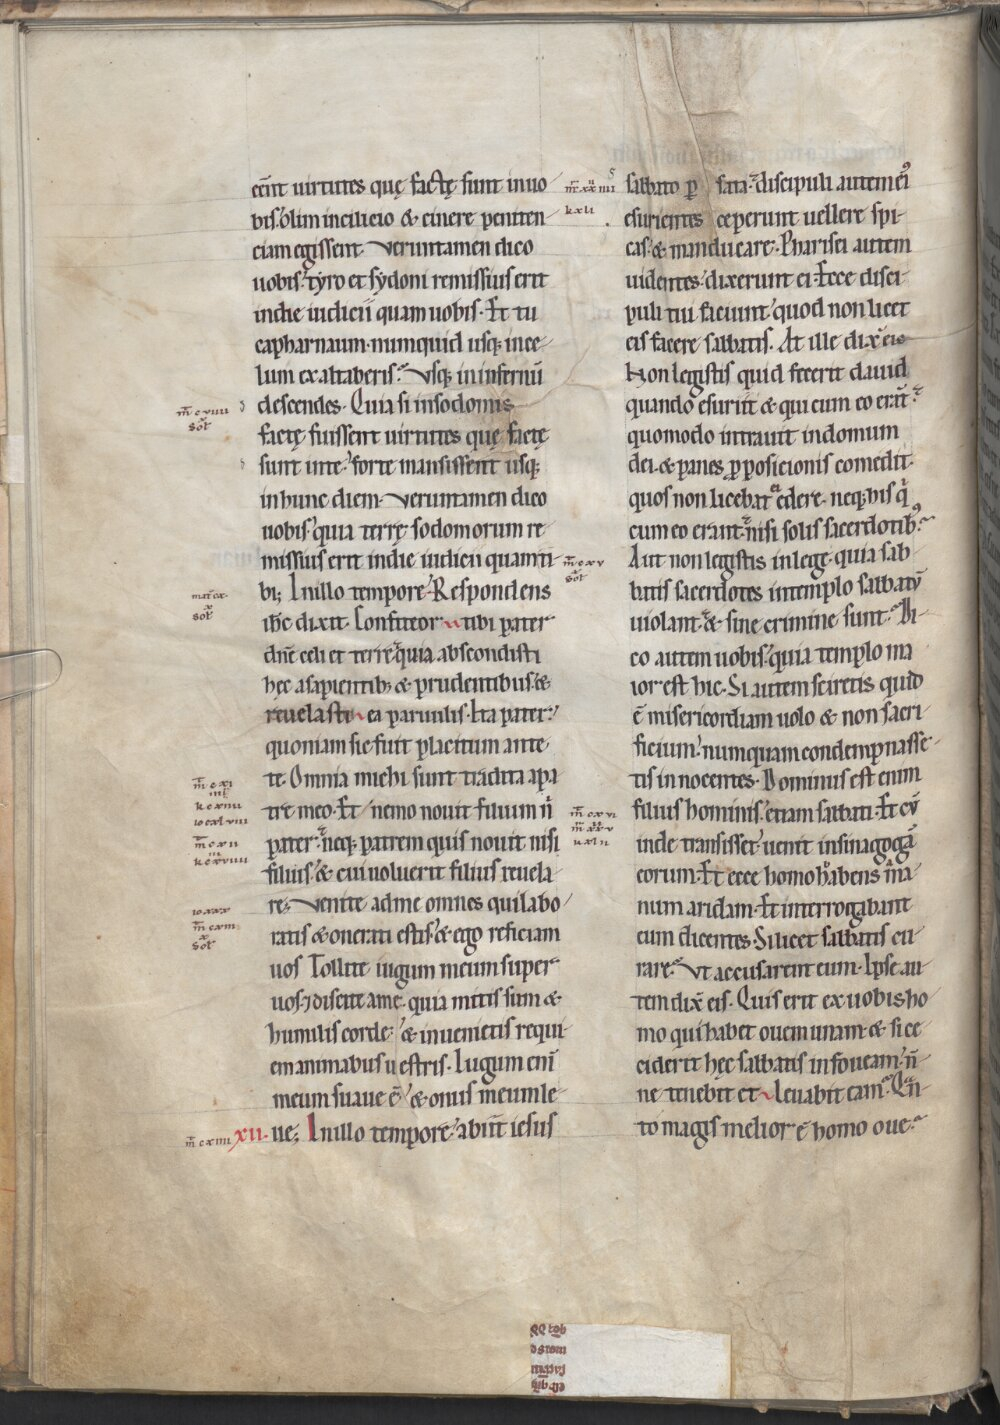 cēnt uirtutes quę factę sunt in uo
bis. olim in cilicio & cinere peniten
ciam egissent. Veruntamen dico
uobis. tyro et sydoni remissius erit
in die iudicii quam uobis. Et tu
capharnaum. numquid usq; in ce
lum exaltaberis? Vsq; in infernū
descendes. Quia si in sodomis
factę fuissent uirtutes quę factę
sunt in te. forte mansissent usq;
in hunc diem. Veruntamen dico
uobis. quia terrę sodomorum re
missius erit in die iudicii quam ti
bi; In illo tempore. Respondens
ih̄c dixit. Confiteor tibi pater
dn̄e celi et terre. quia abscondisti
hęc a sapientib; & prudentibus. &
reuelasti ea paruulis. Ita pater.
quoniam sic fuit placitum ante
te. Omnia michi sunt tradita a pa
tre meo. Et nemo nouit filium n̄
pater. neq; patrem quis nouit nisi
filius. & cui uoluerit filius reuela
re. Venite ad me omnes qui labo
ratis & onerati estis. & ego reficiam
uos. Tollite iugum meum super
uos. 7 discite a me. quia mitis sum &
humilis corde. & inuenietis requi
em animabus uestris. Iugum enī
meum suaue ē. & onus meum le
ue; In illo tempore. abiit iesus
XII.
m̄ c viiii
m̄ c xi
k c xiiii
io cxlviii
m̄ c xii
io xxx
m̄ c xiii
m̄ c xiiii
sabbato p sata. discipuli autem ei9
esurientes ceperunt uellere spi
cas. & manducare. Pharisei autem
uidentes. dixerunt ei. Ecce disci
puli tui faciunt. quod non licet
eis facere sabbatis. At ille dix̄ eis
Non legistis quid fecerit dauid
quando esuriit & qui cum eo erāt?
quomodo intrauit in domum
dei. & panes pposicionis comedit.
quos non licebat ei edere. neq; his q̄
cum eo erant. nisi solis sacerdotib;?
Aut non legistis in lege. quia sab
batis sacerdotes in templo sabbatū
uiolant. & sine crimine sunt? Di
co autem uobis. quia templo ma
ior est hic. Si autem sciretis quid
ē misericordiam uolo & non sacri
ficium. numquam condempnasse
tis innocentes. Dominus est enim
filius hominis. etiam sabbati. Et cū
inde transisset. uenit in sinagogā
eorum. Et ecce homo habens ma
num aridam. Et interrogabant
eum dicentes. Si licet sabbatis cu
rare? Vt accusarent eum. Ipse au
tem dix̄ eis. Quis erit ex uobis ho
mo qui habet ouem unam. & si ce
ciderit hęc sabbatis in foueam. n̄
ne tenebit et leuabit eam? Quā
to magis melior ē homo oue?
k xli
m̄ c xv
m̄ c xvi
k xlii